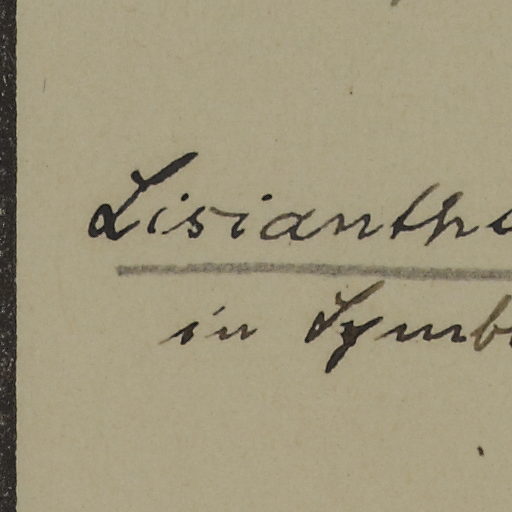 Lisianthu
in Symb